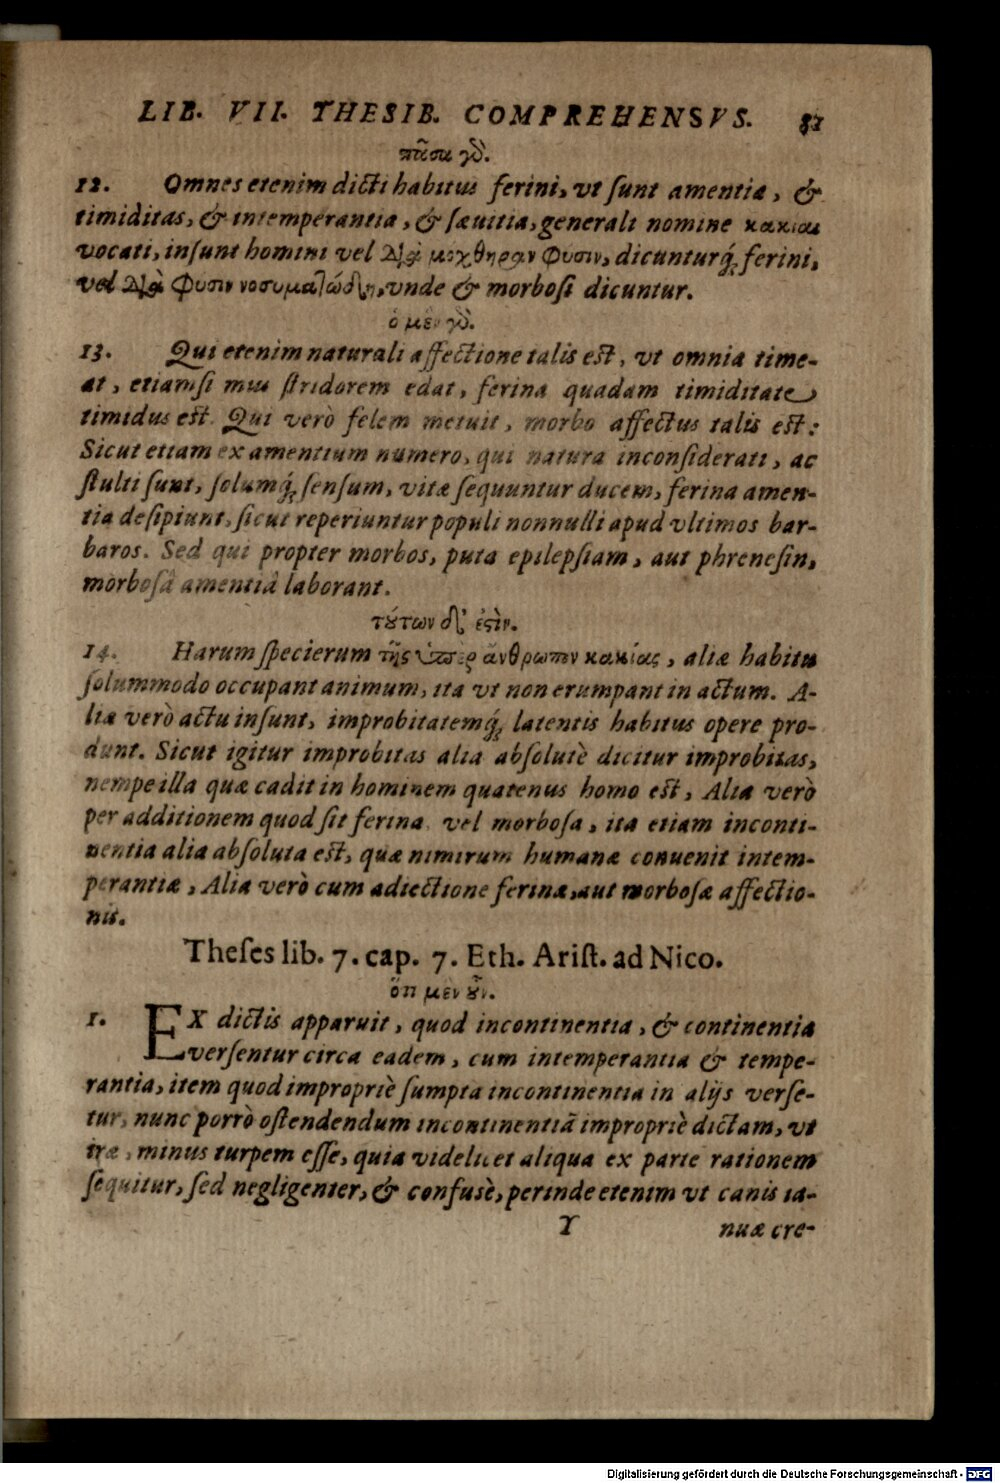 LIB. VII. THESIB. COMPREHENSVS. 81
πᾶσα γὸ.
12. Omnes etenim dicti habitus ferini, vt sunt amentia, &
timiditas, & intemperantia, & sæuitia, generali nomine κακίαι
vocati, insunt homini vel Διὰ μοχθηρὰν Φυσιν, dicunturq́; ferini,
vel Διὰ Φυσιν νοσυματώδη, vnde & morbosi dicuntur.
ὁ μὲν γὸ.
13. Qui etenim naturali affectione talis est, vt omnia time-
at, etiamsi mus stridorem edat, ferina quadam timiditate
timidus est. Qui verò felem metuit, morbo affectus talis est:
Sicut etiam ex amentium numero, qui natura inconsiderati, ac
stulti sunt, solumq́; sensum, vitæ sequuntur ducem, ferina amen-
tia desipiunt, sicut reperiuntur populi nonnulli apud vltimos bar-
baros. Sed qui propter morbos, puta epilepsiam, aut phrenesin,
morbosâ amentiâ laborant.
τȣ́των δ' ἐςὶν.
14. Harum specierum τῆς ὑπὲρ ἄνθρωπον κακίας, aliæ habitu
solummodo occupant animum, ita vt non erumpant in actum. A-
liæ verò actu insunt, improbitatemq́; latentis habitus opere pro-
dunt. Sicut igitur improbitas alia absolutè dicitur improbitas,
nempe illa quæ cadit in hominem quatenus homo est, Alia verò
per additionem quod sit ferina vel morbosa, ita etiam inconti-
nentia alia absoluta est, quæ nimirum humanæ conuenit intem-
perantiæ, Alia verò cum adiectione ferinæ, aut morbosæ affectio-
nis.
Theses lib. 7. cap. 7. Eth. Arist. ad Nico.
ὅτι μὲν ȣ̓͂ν.
1. EX dictis apparuit, quod incontinentia, & continentia
versentur circa eadem, cum intemperantia & tempe-
rantia, item quod impropriè sumpta incontinentia in alijs verse-
tur, nunc porrò ostendendum incontinentiã impropriè dictam, vt
iræ, minus turpem esse, quia videlicet aliqua ex parte rationem
sequitur, sed negligenter, & confusè, perinde etenim vt canis ia-
Y nuæ cre-
Digitalisierung gefördert durch die Deutsche Forschungsgemeinschaft - DFG